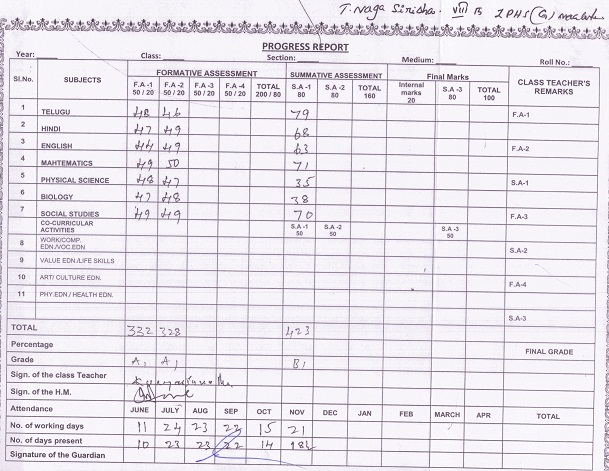 T. Naga Sirisha. VIII B ZPHS(G)
PROGRESS REPORT
Year: Class: Section: Medium: Roll No.:
Sl.No. SUBJECTS FORMATIVE ASSESSMENT SUMMATIVE ASSESSMENT Final Marks CLASS TEACHER'S REMARKS
F.A -1 50 / 20 F.A -2 50 / 20 F.A -3 50 / 20 F.A -4 50 / 20 TOTAL 200 / 80 S.A -1 80 S.A -2 80 TOTAL 160 Internal marks 20 S.A -3 80 TOTAL 100
1 TELUGU 48 46 79 F.A-1
2 HINDI 47 49 68
3 ENGLISH 44 49 63 F.A-2
4 MAHTEMATICS 49 50 71
5 PHYSICAL SCIENCE 48 47 35 S.A-1
6 BIOLOGY 47 48 38
7 SOCIAL STUDIES 49 49 70 F.A-3
CO-CURRICULAR ACTIVITIES S.A -1 50 S.A -2 50 S.A -3 50
8 WORK/COMP. EDN./VOC.EDN S.A-2
9 VALUE EDN./LIFE SKILLS
10 ART/ CULTURE EDN. F.A-4
11 PHY.EDN / HEALTH EDN.
S.A-3
TOTAL 332 328 423
Percentage FINAL GRADE
Grade A1 A1 B1
Sign. of the class Teacher
Sign. of the H.M.
Attendance JUNE JULY AUG SEP OCT NOV DEC JAN FEB MARCH APR TOTAL
No. of working days 11 24 23 22 15 21
No. of days present 10 23 23 22 14
Signature of the Guardian